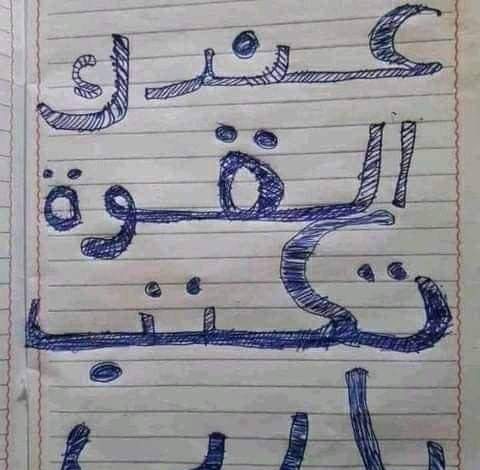 عندك
القوة
تكتب